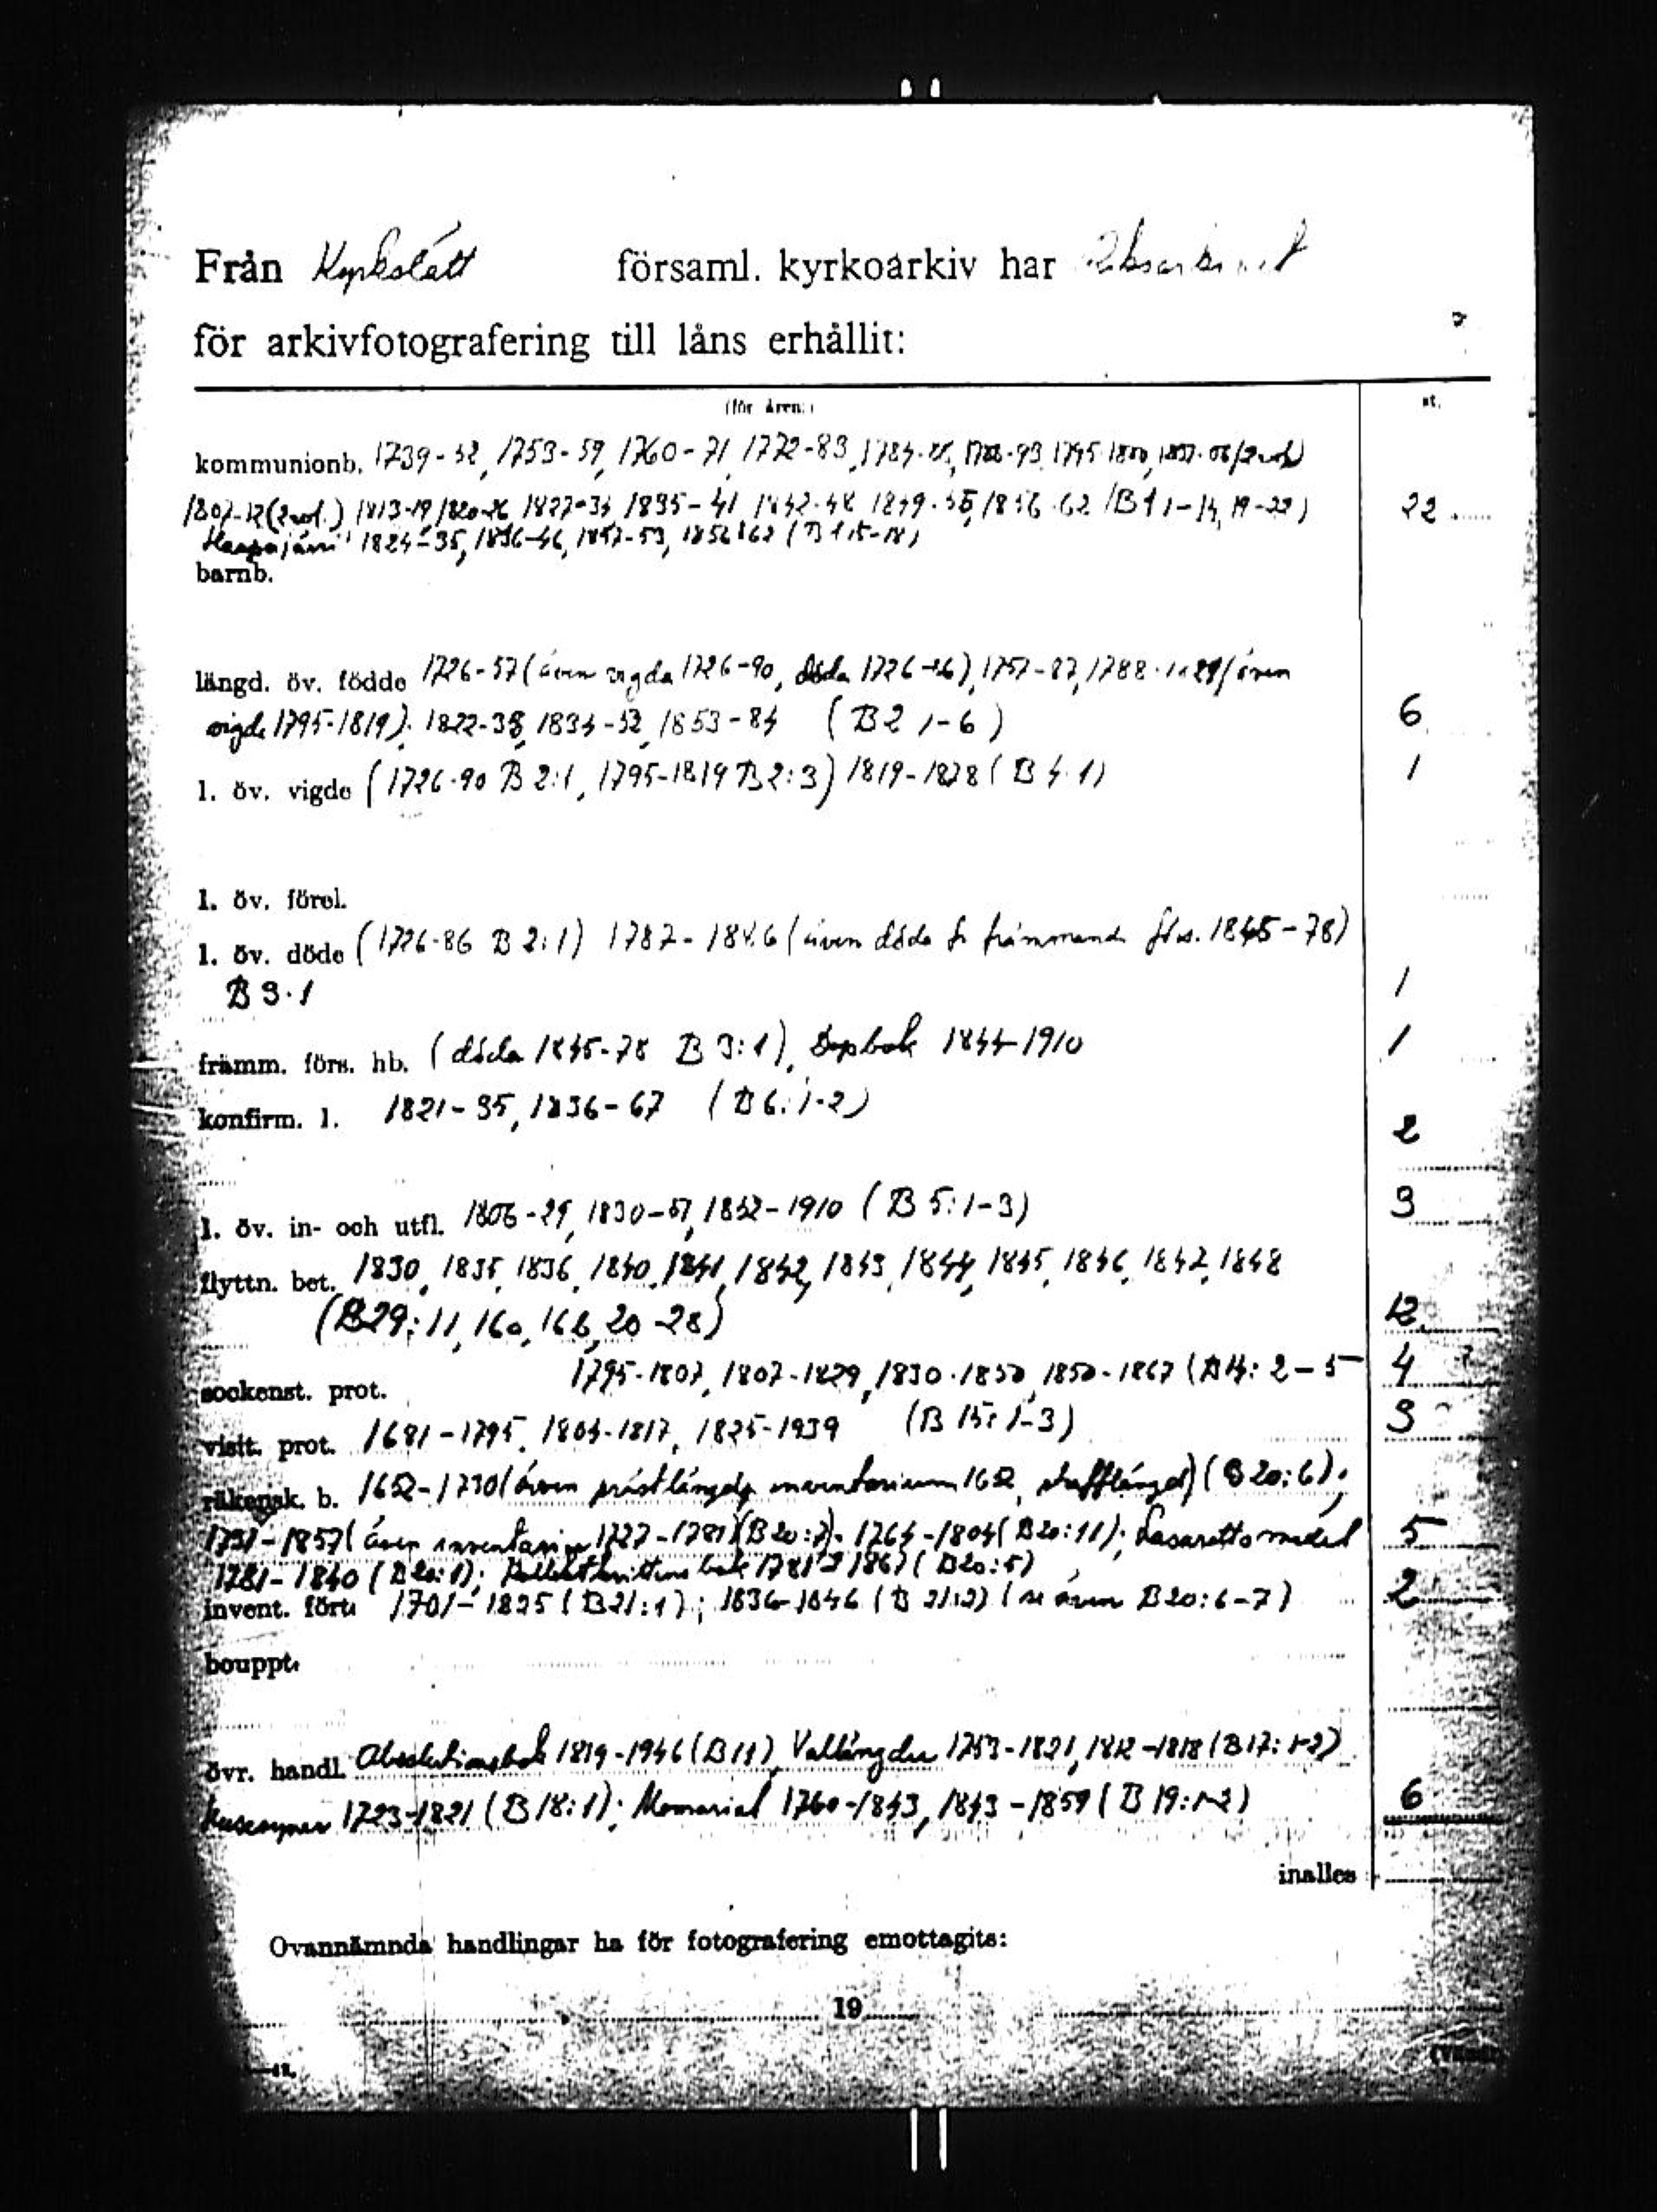 Från Kyrkslätt församl. kyrkoarkiv har Riksarkivet
för arkivfotografering till låns erhållit:
(för åren:) st.
kommunionb. 1739-52, 1753-59, 1760-71, 1772-83, 1784- 1788-93, 1795-1800, (2 vol)
1807-12 (2 vol.) 1813-19, 1820-26 1827-34 1835-41 1842-48 1849-55, 1856-62 (B1 1-14, 19-22) 22
1824-35, 1836-46, 1847-53, 1856-62 (B1 15-18)
barnb.
längd. öv. födde 1726-57 (även vigda 1726-90, döda 1726-86), 1757-87, 1788-1821 (även
vigde 1795-1819), 1822-38, 1834-52, 1853-84 (B2 1-6) 6
l. öv. vigde (1726-90 B 2:1, 1795-1819 B 2:3) 1819-1878 (B 4:1) 1
l. öv. förel.
l. öv. döde (1726-86 B 2:1) 1787-1846 (även döde fr främmande förs. 1845-78)
B 3:1 1
främm. förs. hb. (döda 1845-78 B 3:1), Dopbok 1844-1910 1
konfirm. l. 1821-35, 1836-67 (B 6:1-2) 2
l. öv. in- och utfl. 1806-29, 1830-51, 1852-1910 (B 5:1-3) 3
flyttn. bet. 1830, 1835, 1836, 1840, 1841, 1842, 1843, 1844, 1845, 1846, 1847, 1848
(B29:11, 16a, 16b, 20-28) 12
sockenst. prot. 1795-1807, 1807-1829, 1830-1850, 1850-1867 (B14: 2-5 4
visit. prot. 1681-1795, 1804-1817, 1825-1939 (B 15: 1-3) 3
räkensk. b. 1652-1730 (även inventarium 1652, strafflängd) (B 20:6);
1731-1857 (även inventarium 1727-1781) (B20:7); 1764-1804 (B20:11); Lasarettsmedel 5
1781-1840 (B20:1); bok 1781-1867 (B20:5)
invent. fört. 1701-1825 (B21:1); 1836-1846 (B 21:2) (se även B20:6-7) 2
bouppt.
övr. handl. Absolutionsbok 1819-1946 (B11), Vallängder 1753-1821, 1812-1818 (B17: 1-2)
Husesyner 1723-1821 (B 18:1); Memorial 1760-1843, 1843-1859 (B 19:1-2) 6
inalles
Ovannämnda handlingar ha för fotografering emottagits:
19